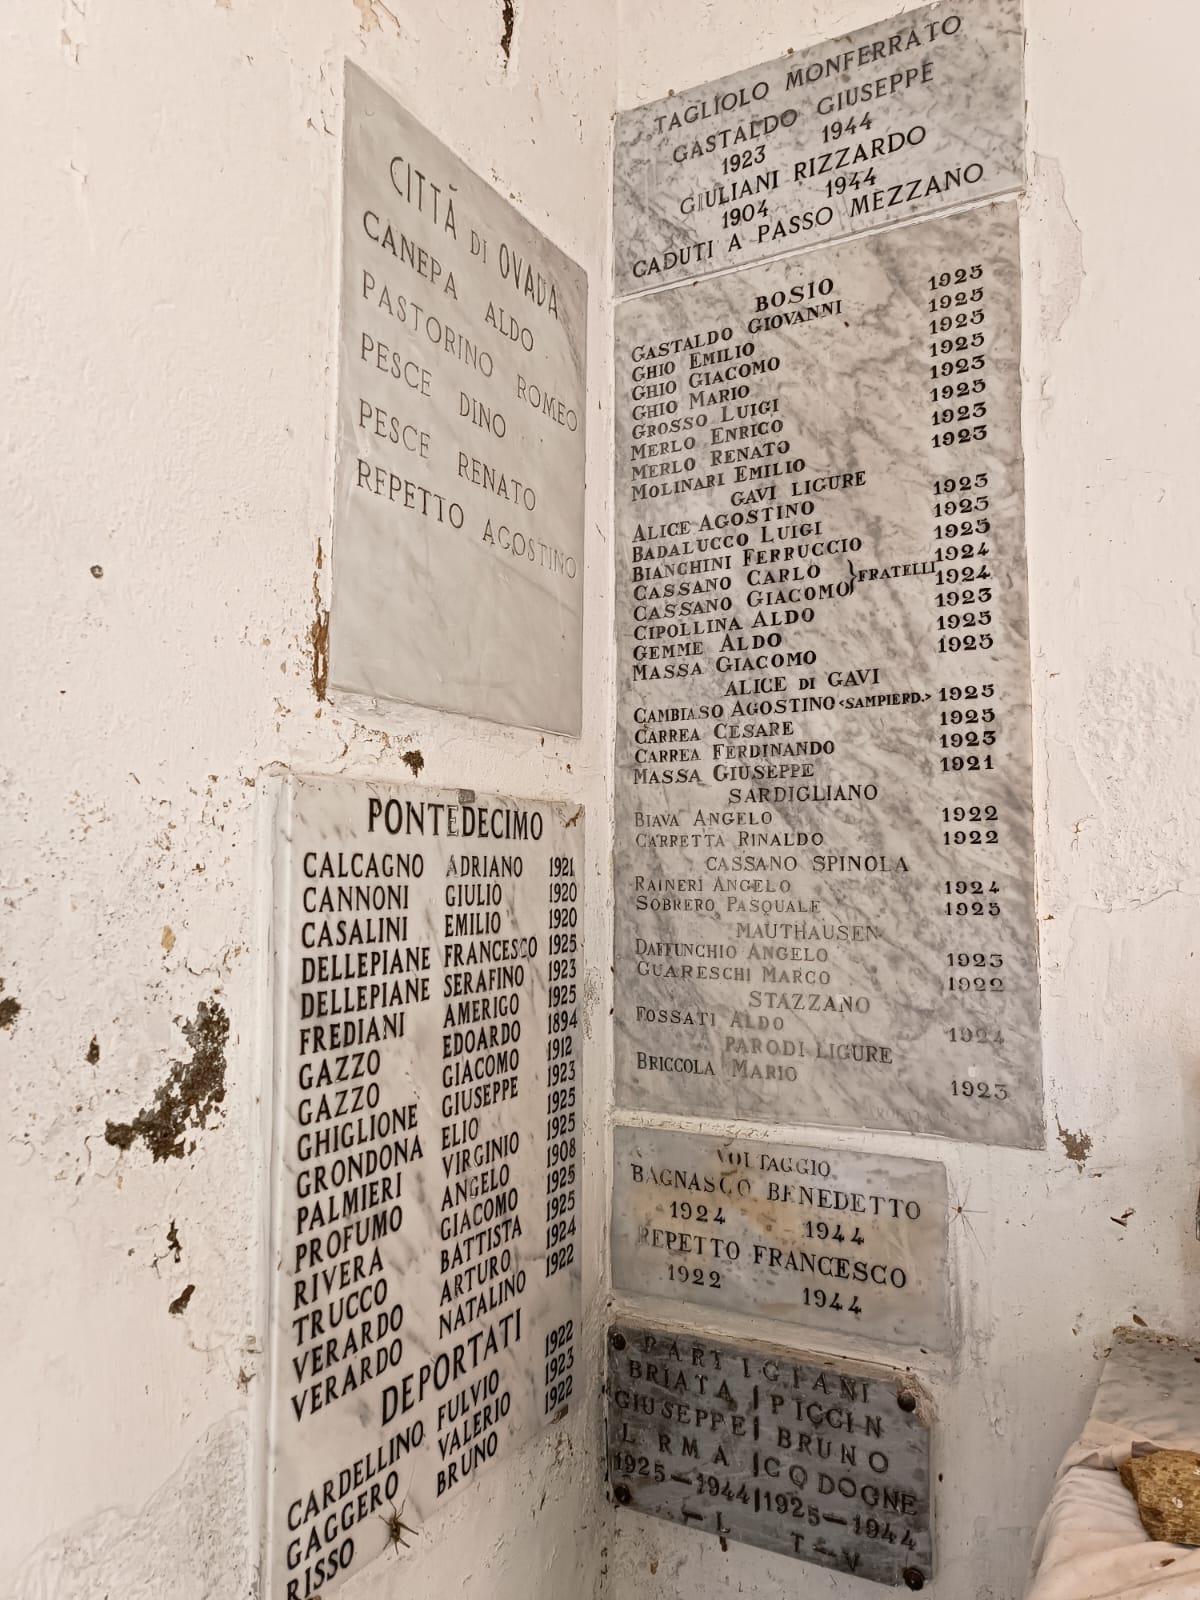 CITTÀ DI OVADA
CANEPA ALDO
PASTORINO ROMEO
PESCE DINO
PESCE RENATO
REPETTO AGOSTINO
PONTEDECIMO
CALCAGNO ADRIANO 1921
CANNONI GIULIO 1920
CASALINI EMILIO 1920
DELLEPIANE FRANCESCO 1925
DELLEPIANE SERAFINO 1923
FREDIANI AMERIGO 1925
GAZZO EDOARDO 1894
GAZZO GIACOMO 1912
GHIGLIONE GIUSEPPE 1923
GRONDONA ELIO 1925
PALMIERI VIRGINIO 1925
PROFUMO ANGELO 1908
RIVERA GIACOMO 1925
TRUCCO BATTISTA 1925
VERARDO ARTURO 1924
VERARDO NATALINO 1922
DEPORTATI
CARDELLINO FULVIO 1922
GAGGERO VALERIO 1923
RISSO BRUNO 1922
TAGLIOLO MONFERRATO
GASTALDO GIUSEPPE
1923 1944
GIULIANI RIZZARDO
1904 1944
CADUTI A PASSO MEZZANO
BOSIO
GASTALDO GIOVANNI 1925
GHIO EMILIO 1925
GHIO GIACOMO 1925
GHIO MARIO 1925
GROSSO LUIGI 1923
MERLO ENRICO 1925
MERLO RENATO 1923
MOLINARI EMILIO 1923
GAVI LIGURE
ALICE AGOSTINO 1923
BADALUCCO LUIGI 1923
BIANCHINI FERRUCCIO 1925
CASSANO CARLO } FRATELLI 1924
CASSANO GIACOMO 1924
CIPOLLINA ALDO 1923
GEMME ALDO 1925
MASSA GIACOMO 1925
ALICE DI GAVI
CAMBIASO AGOSTINO <SAMPIERD.> 1925
CARREA CESARE 1925
CARREA FERDINANDO 1923
MASSA GIUSEPPE 1921
SARDIGLIANO
BIAVA ANGELO 1922
CARRETTA RINALDO 1922
CASSANO SPINOLA
RAINERI ANGELO 1924
SOBRERO PASQUALE 1925
MAUTHAUSEN
DAFFUNCHIO ANGELO 1923
GUARESCHI MARCO 1922
STAZZANO
FOSSATI ALDO 1924
PARODI LIGURE
BRICCOLA MARIO 1923
VOLTAGGIO
BAGNASCO BENEDETTO
1924 1944
REPETTO FRANCESCO
1922 1944
PARTIGIANI
BRIATA | PICCIN
GIUSEPPE | BRUNO
LERMA | CODOGNE
1925-1944 | 1925-1944
-L T-V